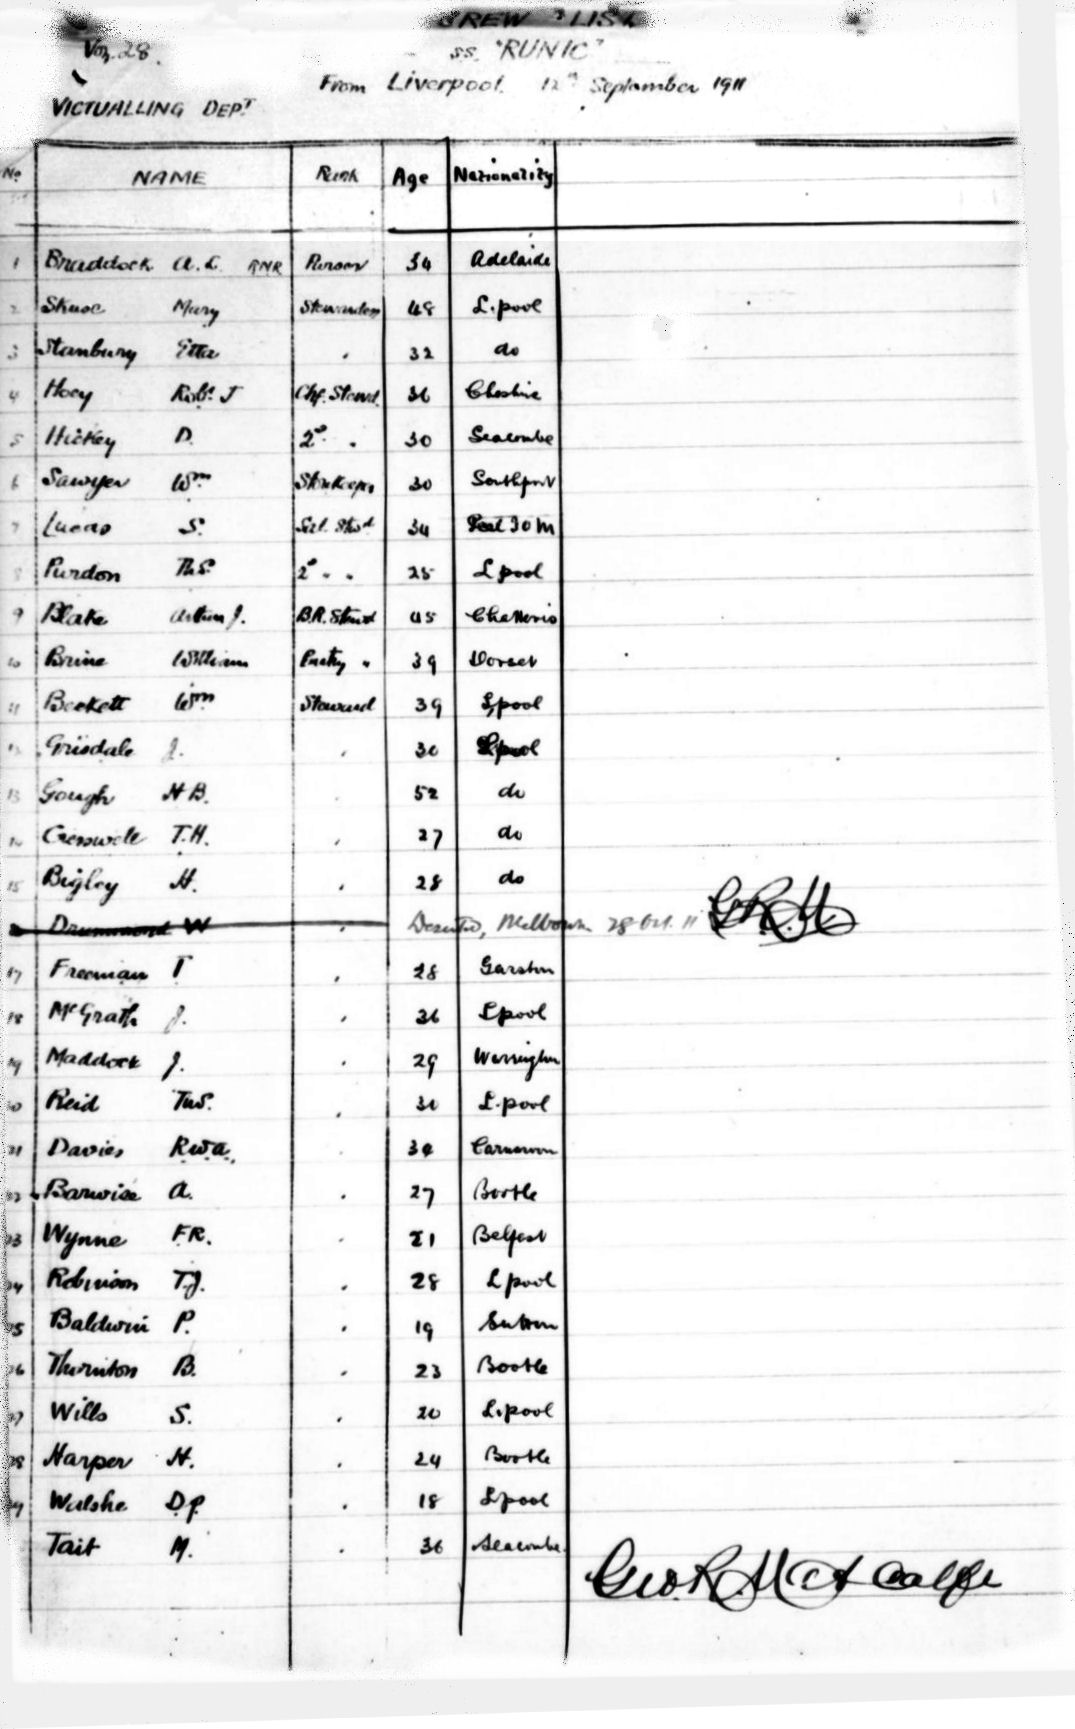 CREW LIST
Voy. 28.
S.S. "RUNIC"
From Liverpool. 12th September 1911
VICTUALLING DEPT
No NAME Rank Age Nationality
1 Braddock A. L. RNR Purser 34 Adelaide
2 Skuse Mary Stewardess 48 L.pool
3 Stanbury Etta " 32 do
4 Hoey Robt. J Chf. Stewd. 36 Cheshire
5 Hickey D. 2nd " 30 Seacombe
6 Sawyer Wm Storekeeper 30 Southport
7 Lucas S. Sal. Stwd 34 Peel I O M
8 Purdon Ths. 2nd " " 25 L pool
9 Blake Arthur J. B.R. Stewd 45 Chatteris
10 Brine William Pantry " 39 Dorset
11 Beckett Wm Steward 39 L,pool
12 Grisdale J. " 30 Lpool
13 Gough H B. " 52 do
14 Cresswell T.H. " 27 do
15 Bigley H. " 28 do
Drummond W " Deserted, Melbourne 28 Oct. 11 G.R.M
17 Freeman T " 28 Garston
18 McGrath J. " 36 Lpool
19 Maddock J. " 29 Warrington
20 Reid Thos. " 30 L.pool
21 Davies R.W.A. " Carnarvon
22 Barwise A. " 27 Bootle
23 Wynne F.R. " 21 Belfast
24 Robinson T.J. " 28 L pool
25 Baldwin P. " 19 Sutton
26 Thornton B. " 23 Bootle
27 Wills S. " 20 L.pool
28 Harper H. " 24 Bootle
29 Walshe D.P. " 18 L.pool
Tait M. " 36 Seacombe.
Geo. R. Metcalfe